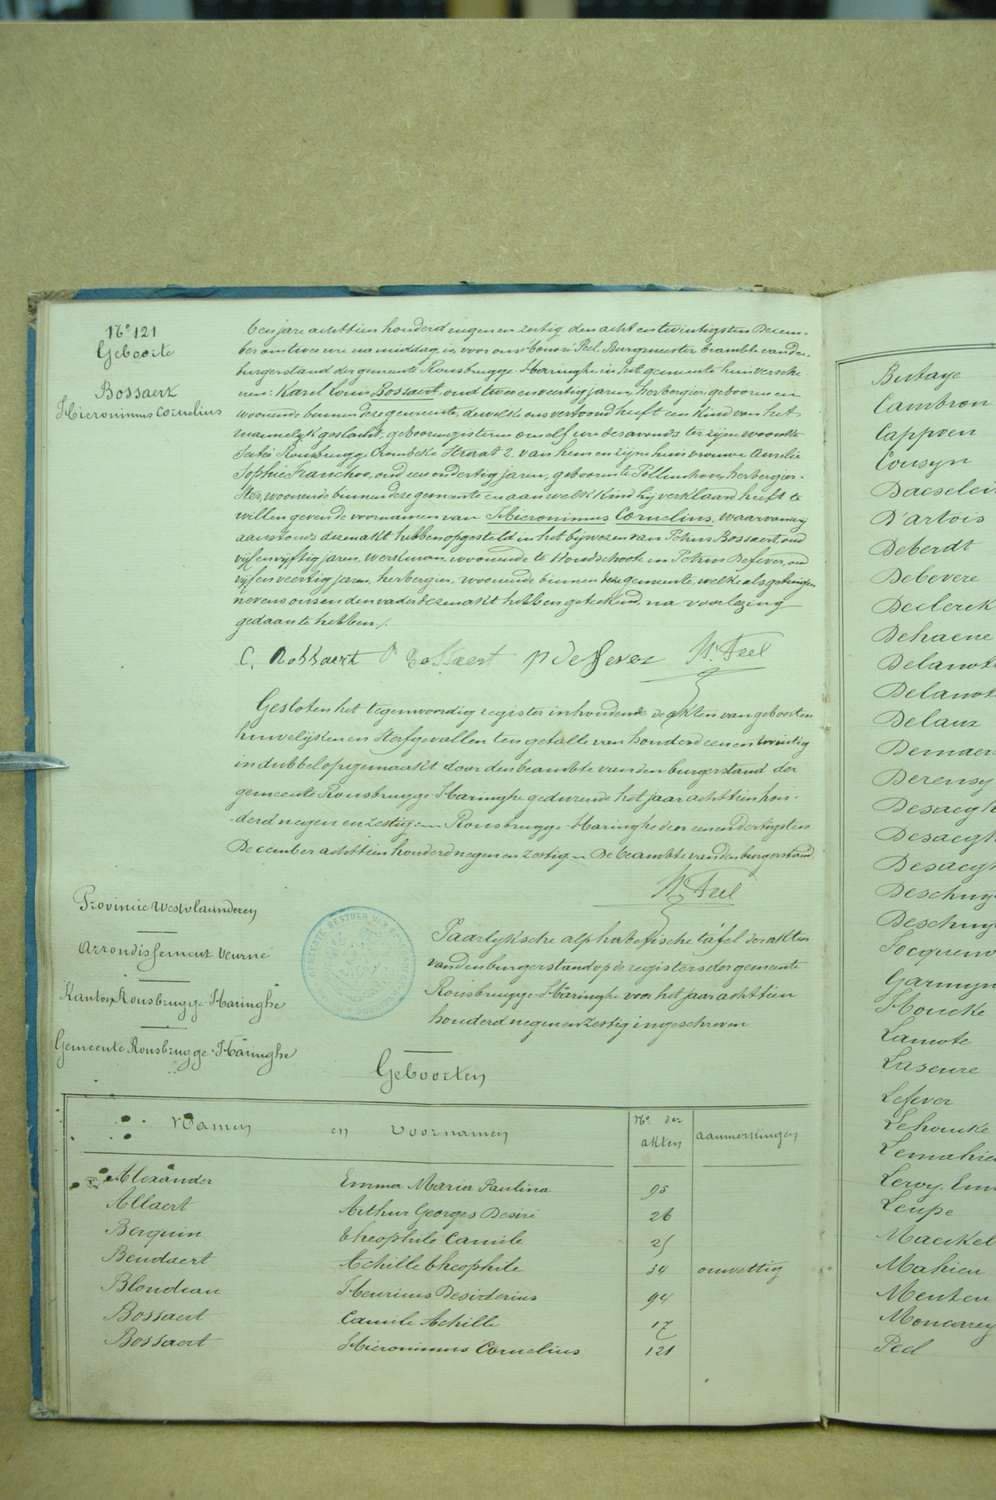 No 121
Geboorte
Bossaert
Hieronimus Cornelius
een jare achttien honderd negen en zestig den acht en twintigsten Decem-
ber om twee ure na middag, is voor ons Peel Burgmeester beambte van den
burgerstand der gemeente Rousbrugge-Haringhe in het gemeente huis versche
nen: Karel Louis Bossaert, oud twee en veertig jaren, herbergier, geboren en
woonende binnen deze gemeente, dewelke ons vertoond heeft een kind van het
mannelyk geslacht, geboren gisteren om elf ure des avonds ter zyner woonste
Rousbrugge Crombeke Straat 2. van hem en zyne huisvrouwe Amelie
Sophie oud een en dertig jaren, geboren te Pollinchove, herbergier-
ster, woonende binnen deze gemeente en aan welk kind hy verklaard heeft te
willen geven de voornamen van Hieronimus Cornelius, waarvan wy
aanstonds dezen akt hebben opgesteld in het bywezen van Petrus Bossaert, oud
vyf en vyftig jaren, werkman, woonende te Hondschoote en Petrus Defever, oud
vyf en veertig jaren, herbergier, woonende binnen deze gemeente, welke als getuigen
nevens ons en den vader dezen akt hebben geteekend, na voorlezing
gedaan te hebben./.
C. Bossaert P Bossaert P defever H. Peel
Gesloten het tegenwoordig register inhoudende de akten van geboorten
huwelijken en sterfgevallen ten getalle van honderd een en twintig
in dubbel opgemaakt door den beambte van den burgerstand der
gemeente Rousbrugge-Haringhe gedurende het jaar achttien hon-
derd negen en zestig. — Rousbrugge-Haringhe den een en dertigsten
December achttien honderd negen en zestig — De beambte van den burgerstand
H. Peel
Provincie Westvlaanderen
Arrondissement Veurne
Kanton Rousbrugge-Haringhe
Gemeente Rousbrugge-Haringhe
Jaarlyksche alphabetische tafel der akten
van den burgerstand op de registers der gemeente
Rousbrugge-Haringhe voor het jaar achttien
honderd negen en zestig ingeschreven
Geboorten
Namen en Voornamen No der akten aanmerkingen
Alexander Emma Maria Paulina 95
Allaert Arthur Georges Desiré 26
Berquin theophile Camile 25
Beudaert Achille theophile 34 onwettig
Blondeau Henricus Desiderius 94
Bossaert Camile Achille 17
Bossaert Hieronimus Cornelius 121
Butaye
Cambron
Cappoen
Cousyn
D'artois
Deberdt
Debevere
Declerck
Dehaene
Delanote
Delanot
Garmyn
Houcke
Lamote
Laseure
Lefever
Lehoucke
Lemahieu
Leroy
Leupe
Maeckel
Mahieu
Menten
Moncarey
Peel